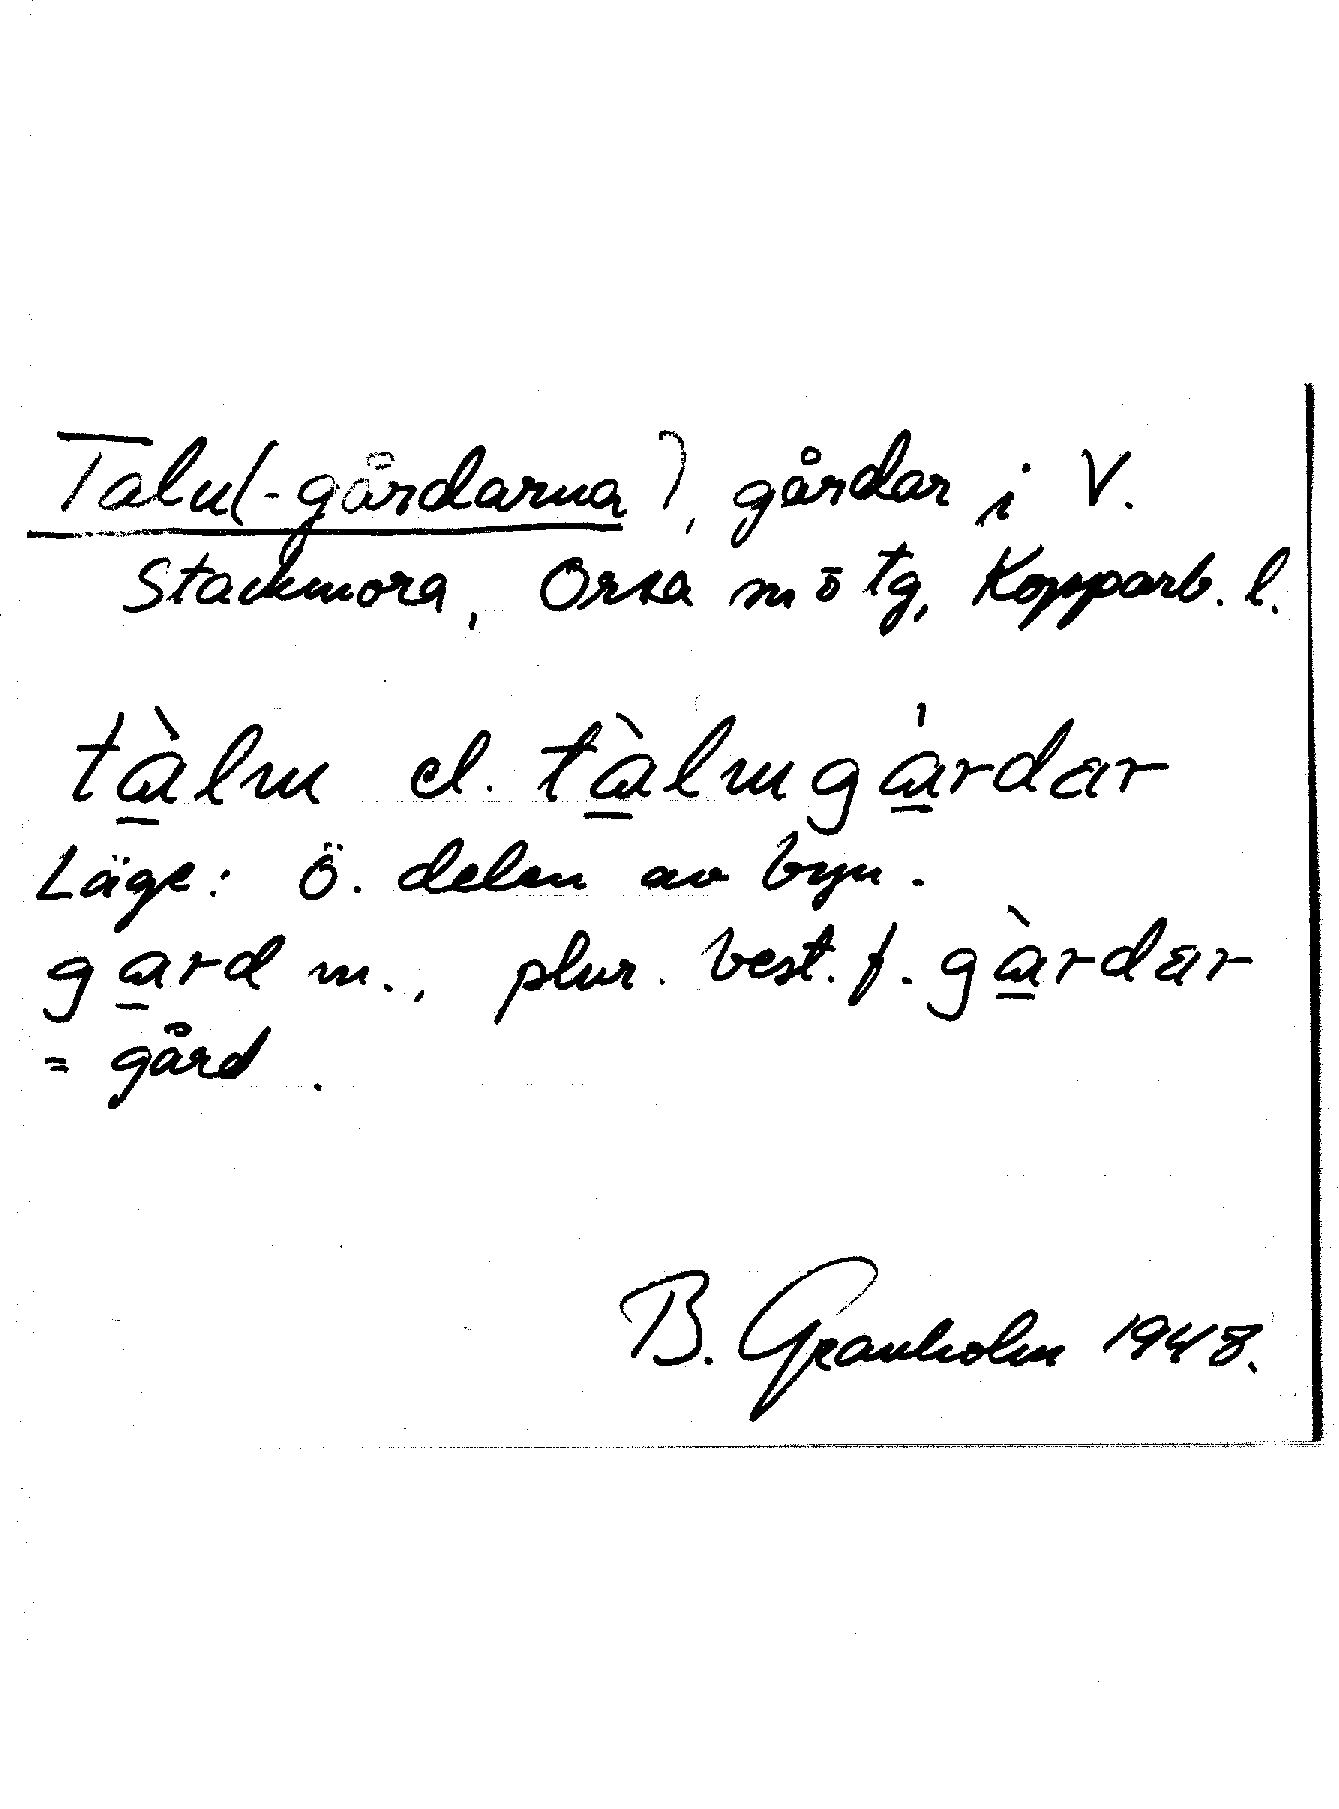 Talu(-gårdarna), gårdar i V.
Stackmora, Orsa m ö tg, Kopparb. l.
tàlm el. tàlmgárdar
Läge: Ö. delen av byn.
gard m., plur. best. f. gàrdar
= gård.
B. Granholm 1948.